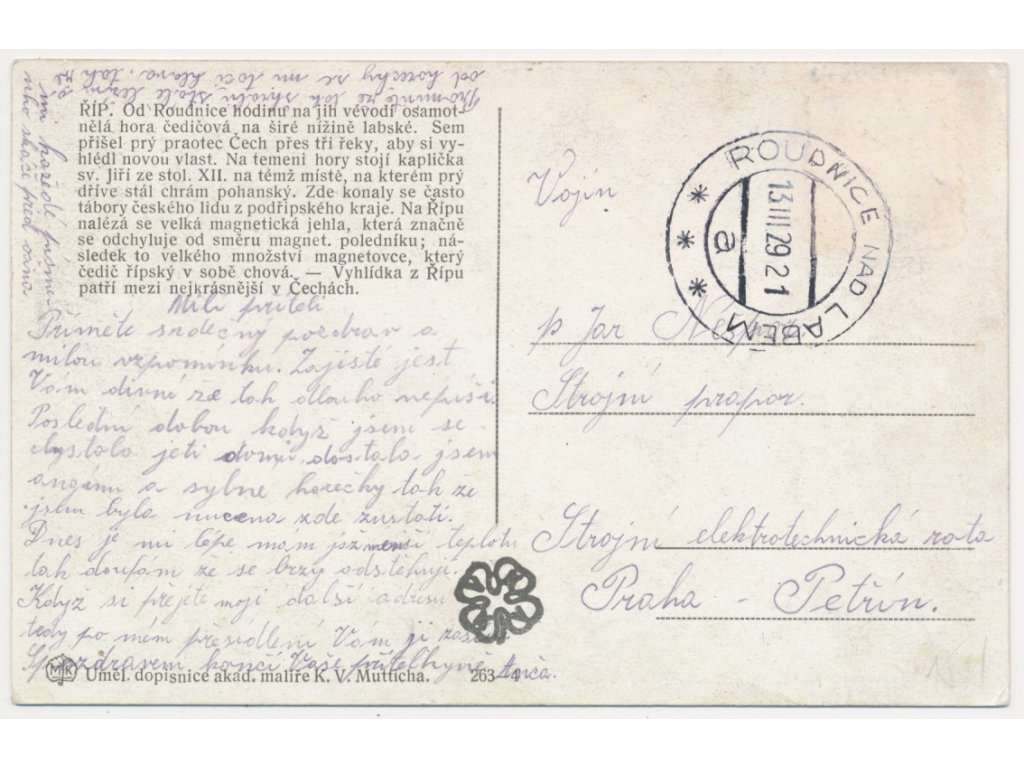 ŘÍP. Od Roudnice hodinu na jih vévodí osamot-
nělá hora čedičová na širé nížině labské. Sem
přišel prý praotec Čech přes tři řeky, aby si vy-
hlédl novou vlast. Na temeni hory stojí kaplička
sv. Jiří ze stol. XII. na témž místě, na kterém prý
dříve stál chrám pohanský. Zde konaly se často
tábory českého lidu z podřipského kraje. Na Řípu
nalézá se velká magnetická jehla, která značně
se odchyluje od směru magnet. poledníku; ná-
sledek to velkého množství magnetovce, který
čedič řípský v sobě chová. — Vyhlídka z Řípu
patří mezi nejkrásnější v Čechách.
Milí příteli
Přiměte srdečný pozdrav a
milou vzpomínku. Zajisté jest
Vám divné že tak dlouho nepíši.
Poslední dobou když jsem se
chystala jeti domů dostala jsem
angínu a sylne horečky tak že
jsem byla nucena zde zustati.
Dnes je mi lépe mam jez mensí teplotu
tak doufam že se brzy odstěhuji.
Když si přejete moji další adresu
tedy po mém přesídlení Vám ji
S pozdravem končí Vaše přítelkyně
Prominte ze tak stále
od horechy se mi točí hlava. tak že
Uměl. dopisnice akad. malíře K. V. Mutticha.
263—4
MK
ROUDNICE NAD LABEM
13 III 29 21
a
Vojín
p Jar
Strojní prapor.
Strojní elektrotechnická rota
Praha - Petřín.